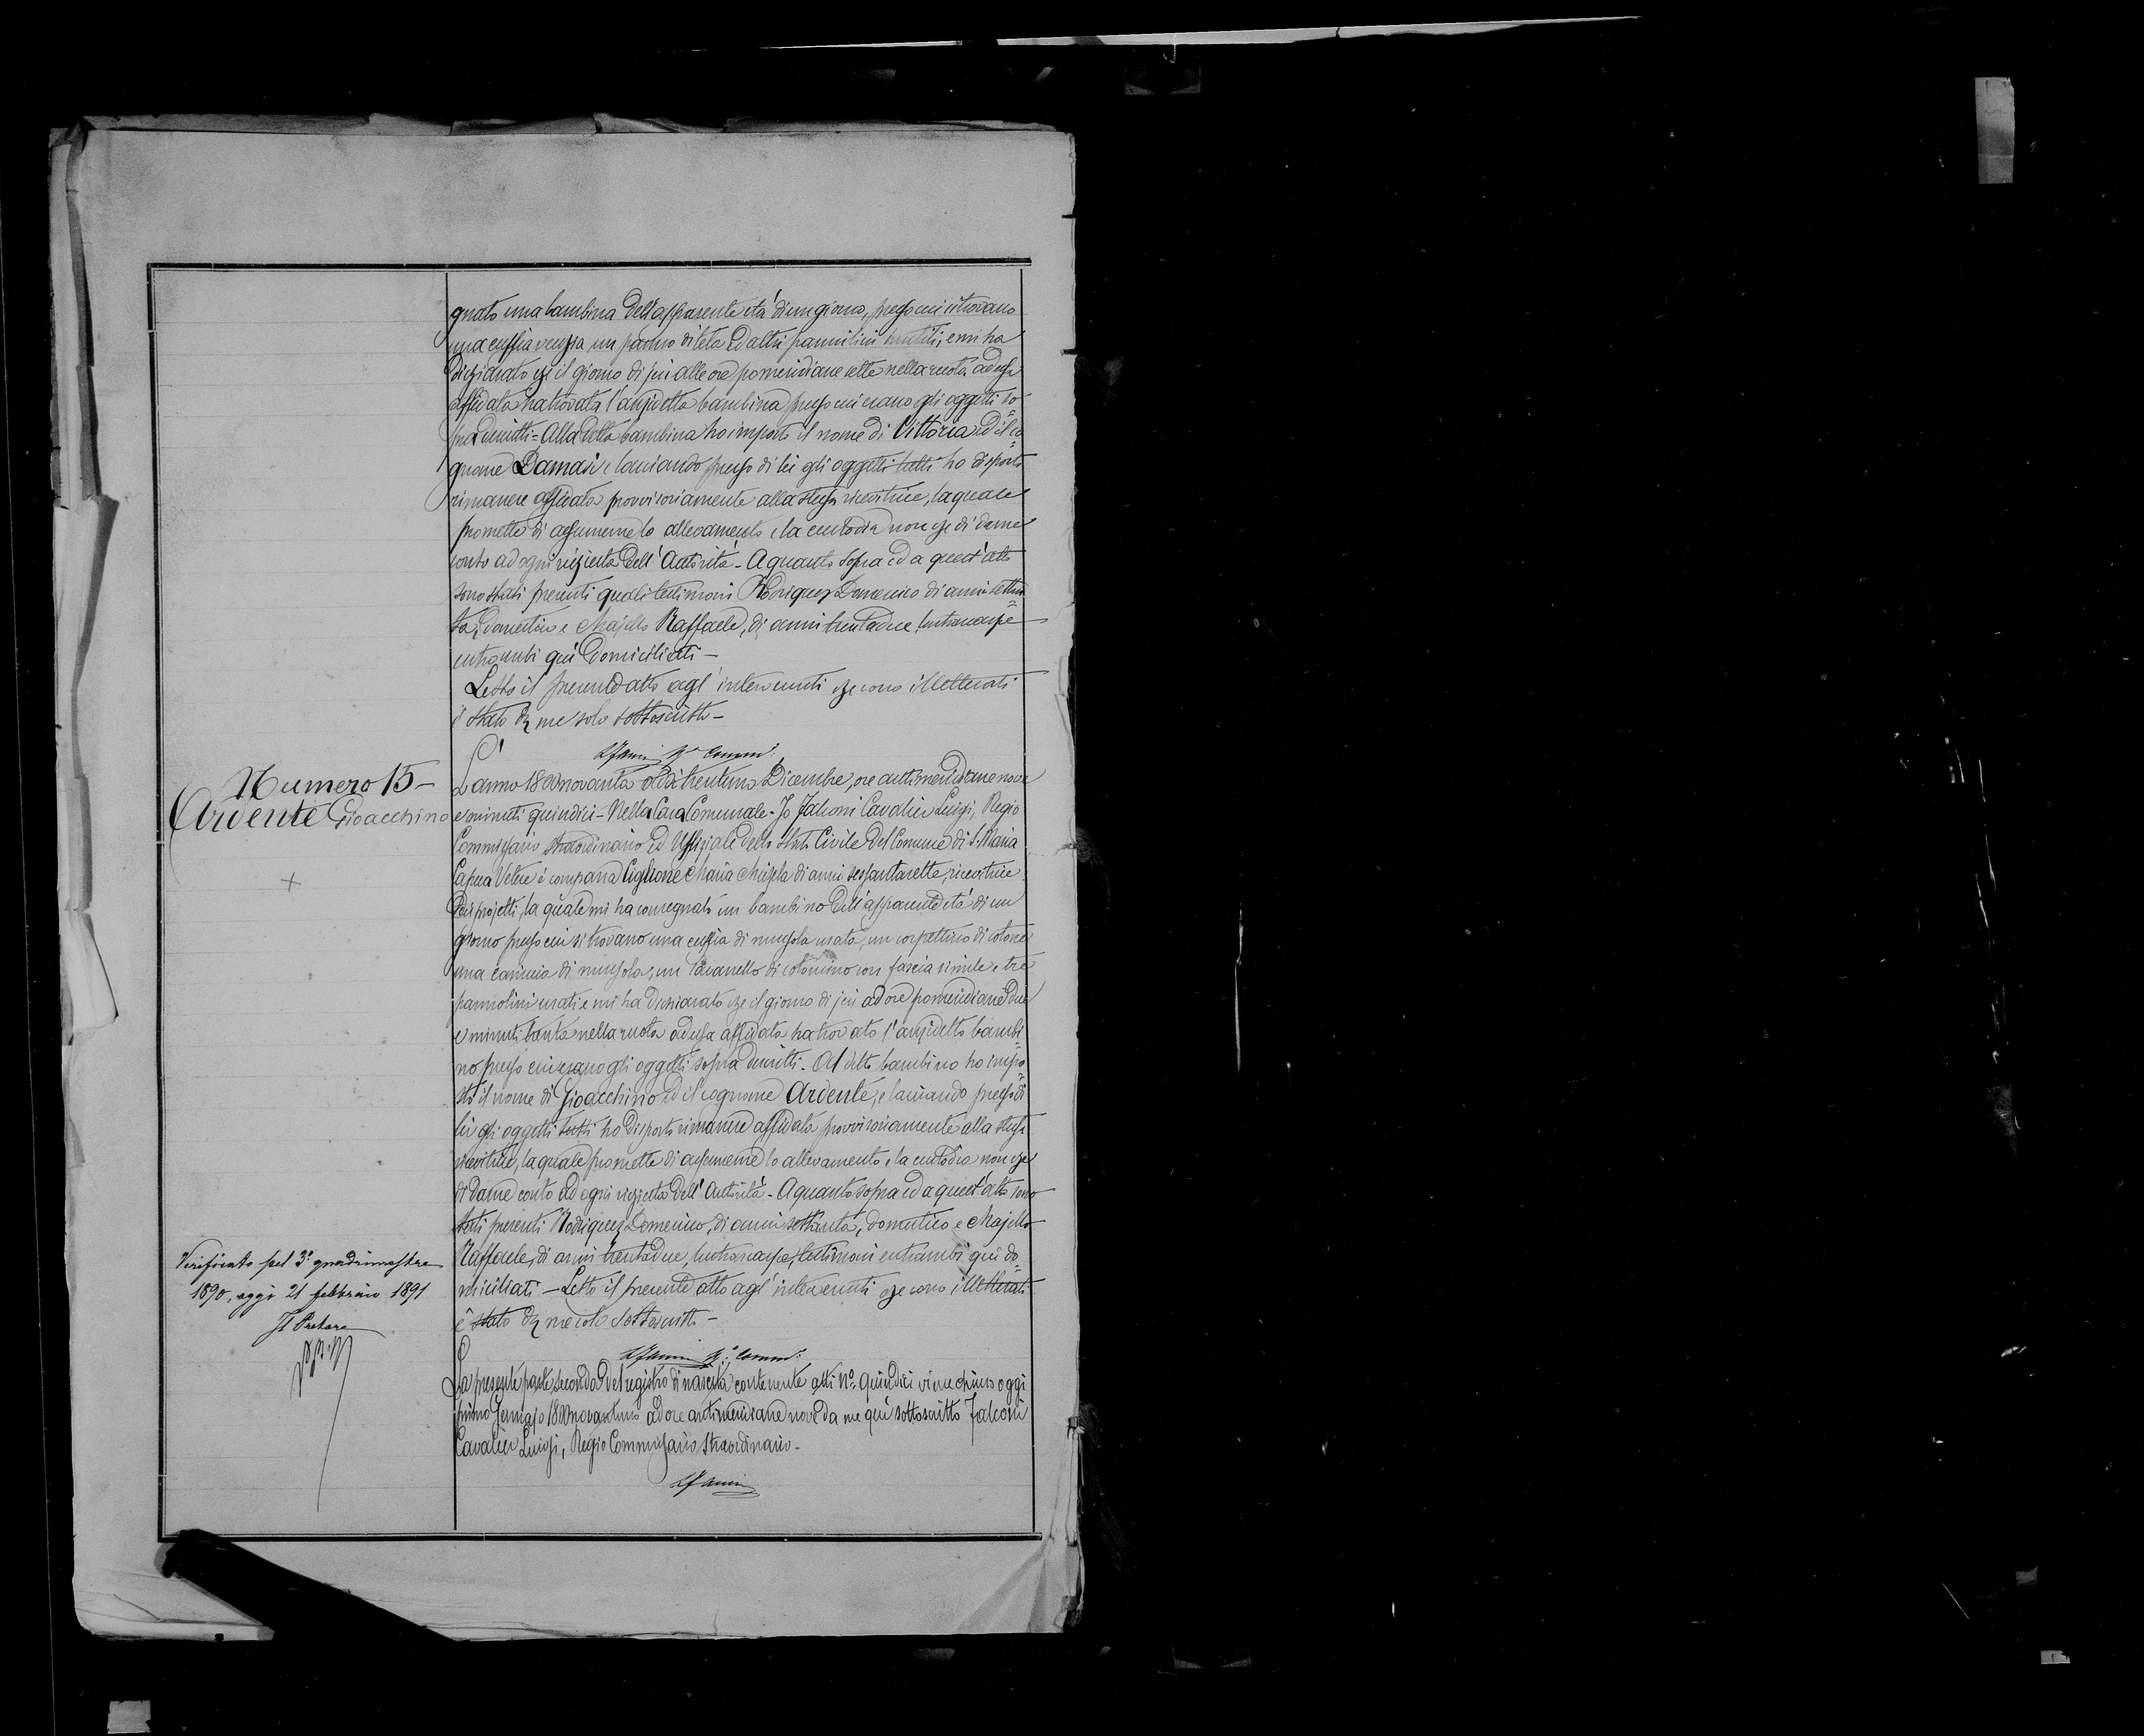 gnato una bambina dell'apparente età di un giorno, presso cui si trovano
una cuffia vecchia un panno di tela ed altri pannilini inutili, e mi ha
dichiarato che il giorno di jeri alle ore pomeridiane sette nella ruota ad essa
affidata ha trovata l'anzidetta bambina presso cui erano gli oggetti so=
pradescritti = Alla detta bambina ho imposto il nome di Vittoria ed il co=
gnome Damasi e lasciando presso di lei gli oggetti tutti ho disposto
rimanere affidata provvisoriamente alla stessa ricevitrice, la quale
promette di assumerne lo allevamento e la custodia non che di darne
conto ad ogni richiesta dell'Autorità - A quanto sopra ed a quest'atto
sono stati presenti quali testimoni Rodriquez Domenico di anni settan=
ta, domestico e Majello Raffaele, di anni trentadue, lustrascarpe
entrambi qui domiciliati -
Letto il presente atto agl'intervenuti che sono illetterati
è stato da me solo sottoscritto -
LFalconi Rº Comm:
Numero 15 -
Ardente Gioacchino
L'anno 1800novanta addì trentuno Dicembre, ore antimeridiane nove
e minuti quindici - Nella Casa Comunale - Io Falconi Cavalier Luigi, Regio
Commissario Straordinario ed Uffiziale dello Stato Civile del Comune di S. Maria
Capua Vetere è comparsa Ciglione Maria Michela di anni sessantasette, ricevitrice
dei projetti, la quale mi ha consegnato un bambino dell'apparente età di un
giorno presso cui si trovano una cuffia di mussola usata, un corpettino di cotone
una camicia di mussola, un savanello di cotonino con fascia simile e tre
pannolini usati e mi ha dichiarato che il giorno di jeri ad ore pomeridiane due
e minuti trenta nella ruota ad essa affidata ha trovato l'anzidetto bambi=
no presso cui erano gli oggetti sopra descritti - Al detto bambino ho impo=
sto il nome di Gioacchino ed il cognome Ardente, e lasciando presso di
lui gli oggetti tutti ho disposto rimanere affidato provvisoriamente alla stessa
ricevitrice, la quale promette di assumerne lo allevamento e la custodia non che
di darne conto ad ogni richiesta dell'Autorità - A quanto sopra ed a quest'atto sono
stati presenti Rodriquez Domenico, di anni settanta, domestico e Majello
Raffaele, di anni trentadue, lustrascarpe, testimoni entrambi qui do=
miciliati - Letto il presente atto agl'intervenuti che sono illetterati
è stato da me solo sottoscritto -
LFalconi Rº Comm:
Verificato pel 3º quadrimestre
1890, oggi 21 febbraio 1891
Il Pretore
La presente parte seconda del registro di nascita contenente atti Nº Quindici viene chiuso oggi
primo Gennajo 1800novantuno ad ore antimeridiane nove da me qui sottoscritto Falconi
Cavalier Luigi, Regio Commissario Straordinario -
LFalconi